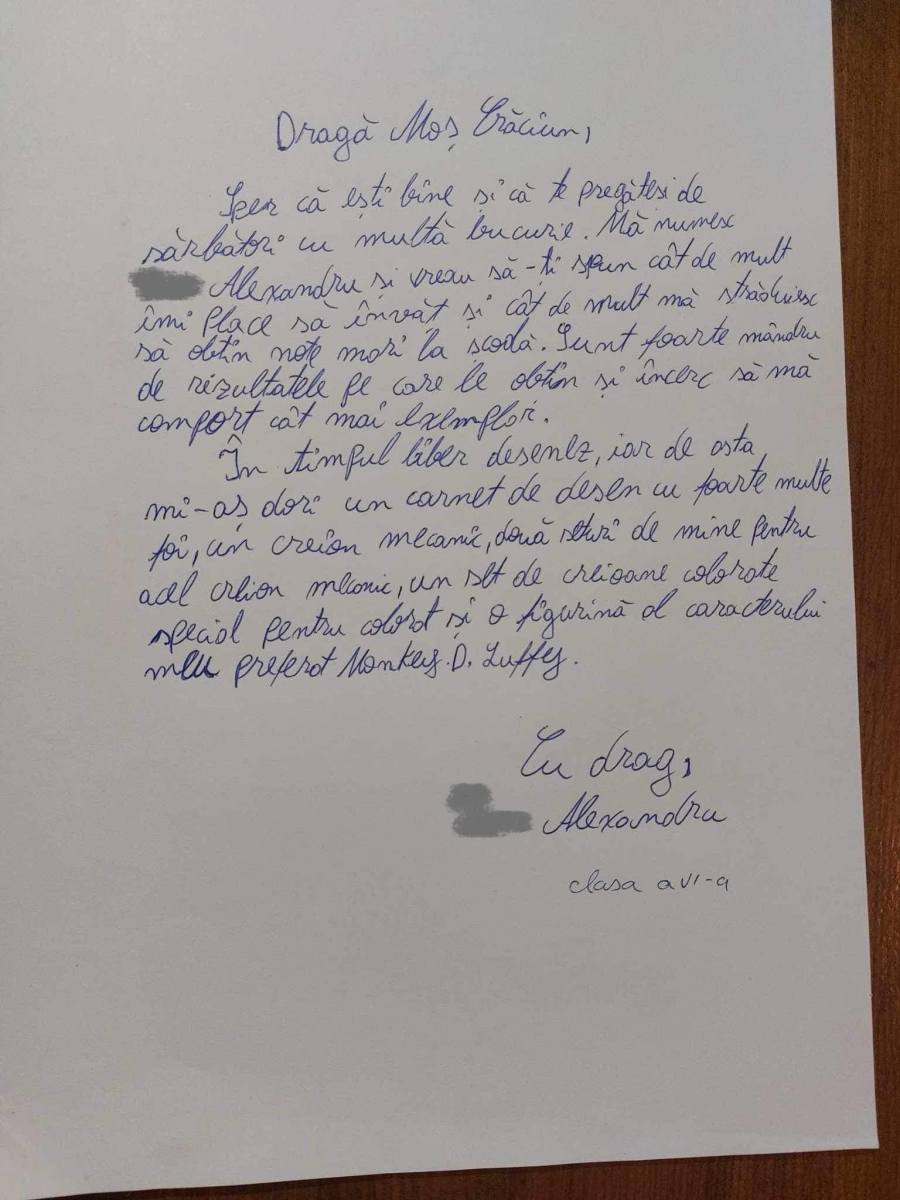 Dragă Moș Crăciun,
Sper că ești bine și că te pregătesi de
sărbători cu multă bucurie. Mă numesc
Alexandru și vreau să-ți spun cât de mult
îmi place să învăt și cât de mult mă străduiesc
să obțin note mari la școală. Sunt foarte mândru
de rezultatele pe care le obțin și încerc să mă
comport cât mai exemplar.
În timpul liber desenez, iar de asta
mi-aș dori un carnet de desen cu foarte multe
foi, un creion mecanic, două seturi de mine pentru
acel creion mecanic, un set de creioane colorate
special pentru colorat și o figurină al caracterului
meu preferat Monkey. D. Luffy.
Cu drag,
Alexandru
clasa a VI-a